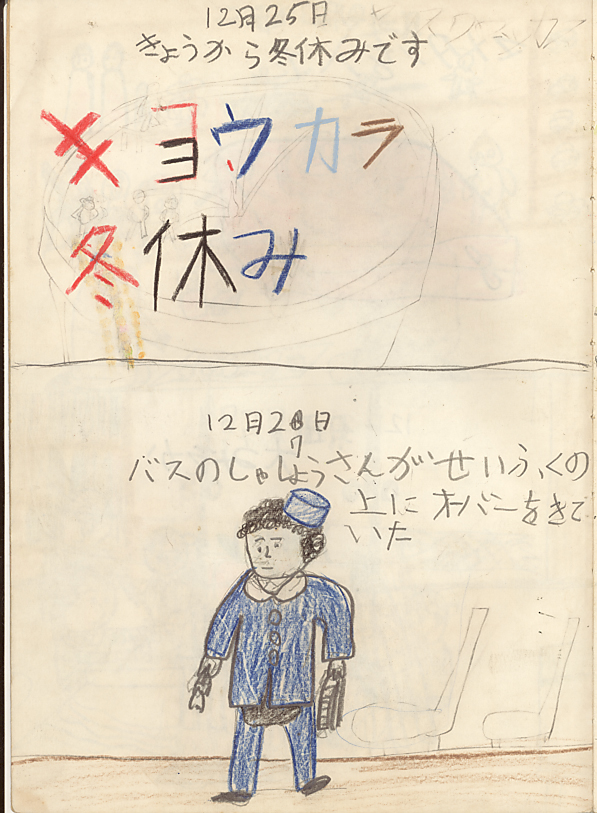 12月25日
きょうから冬休みです
キヨウカラ
冬休み
12月28日
7
バスのしゃしょうさんがせいふくの
上にオーバーをきて
いた